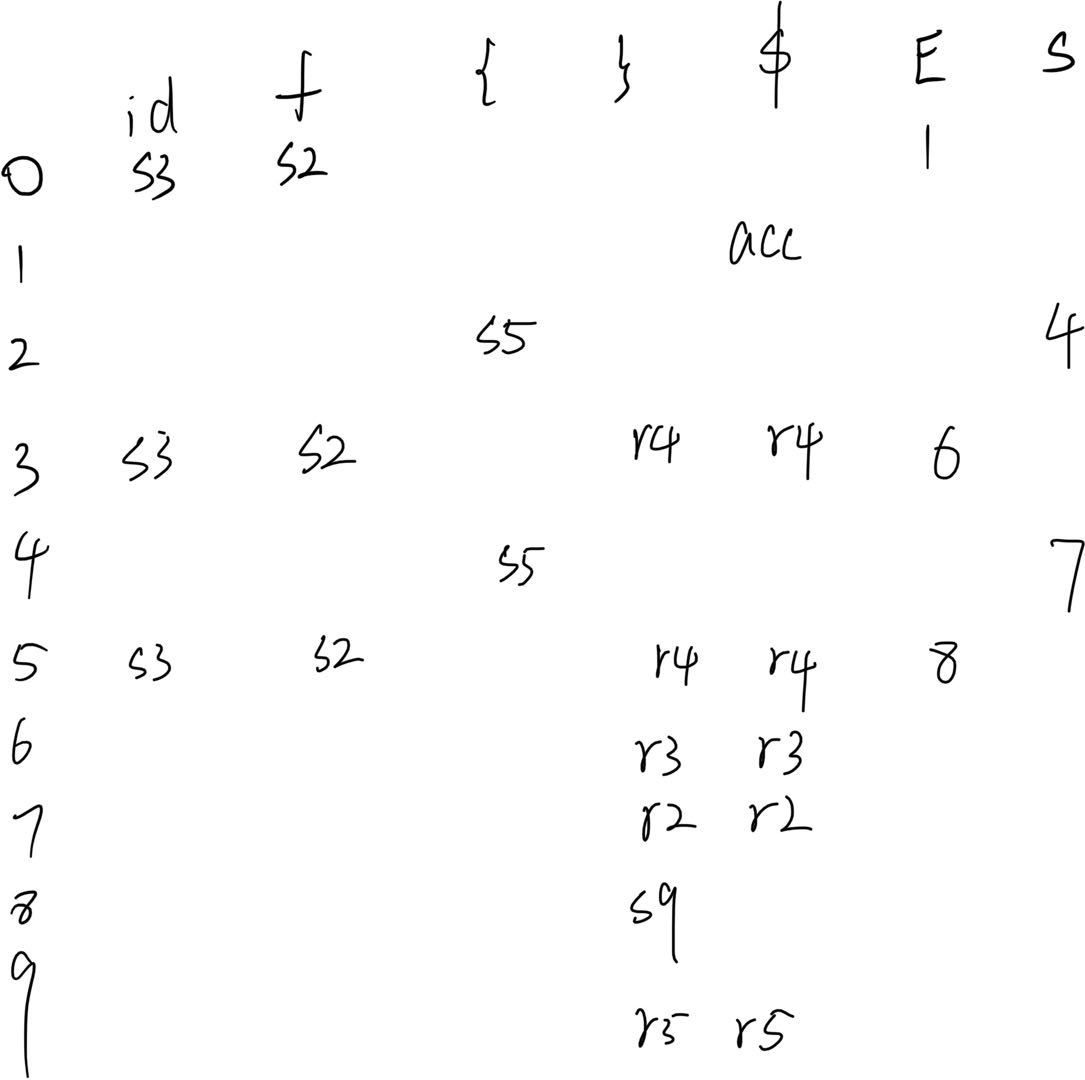 id f { } $ E S
0 s3 s2 1
1 acc
2 s5 4
3 s3 s2 r4 r4 6
4 s5 7
5 s3 s2 r4 r4 8
6 r3 r3
7 r2 r2
8 s9
9 r5 r5